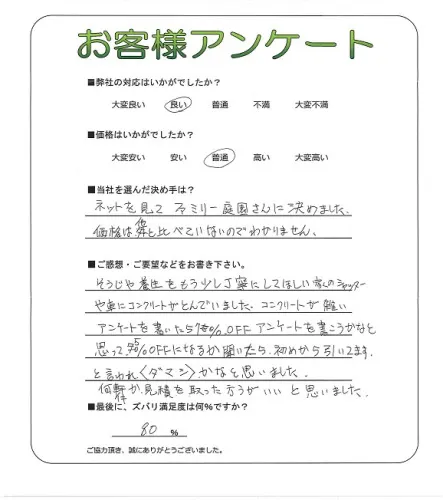 お客様アンケート
■弊社の対応はいかがでしたか？
大変良い 良い 普通 不満 大変不満
■価格はいかがでしたか？
大変安い 安い 普通 高い 大変高い
■当社を選んだ決め手は？
ネットを見て ファミリー庭園さんに決めました。
価格は他と比べていないのでわかりません。
■ご感想・ご要望などをお書き下さい。
そうじや養生をもう少し丁寧にしてほしい 家のシャッター
や車にコンクリートがとんでいました。コンクリートが雑い
アンケートを書いたら %OFF アンケートを書こうかなと
思って、5%OFFになるか聞いたら、初めから引いてます。
と言われ〈ダマシ〉かなと思いました。
何軒か、見積を取った方がいいと思いました。
■最後に、ズバリ満足度は何%ですか？
80 %
ご協力頂き、誠にありがとうございました。